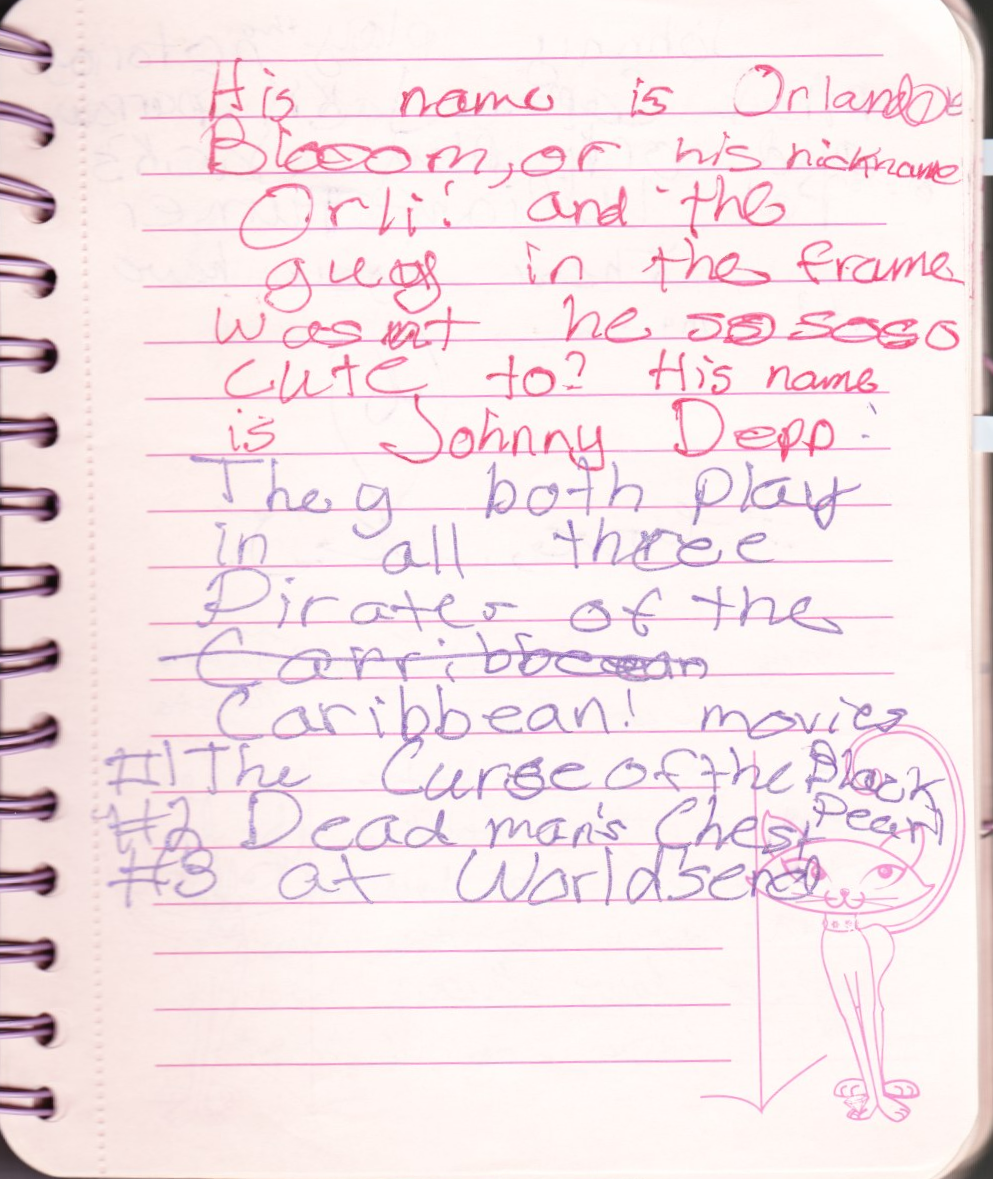 His name is Orlando
Blooom, or his nickname
Orli! and the
guys in the frame
wasnt he so soso
cute to? His name
is Johnny Depp!
They both play
in all three
Pirates of the
Carribbean
Caribbean! movies
#1 The Curse of the Black
Pearl
#2 Dead man's Chest
#3 at Worldsend